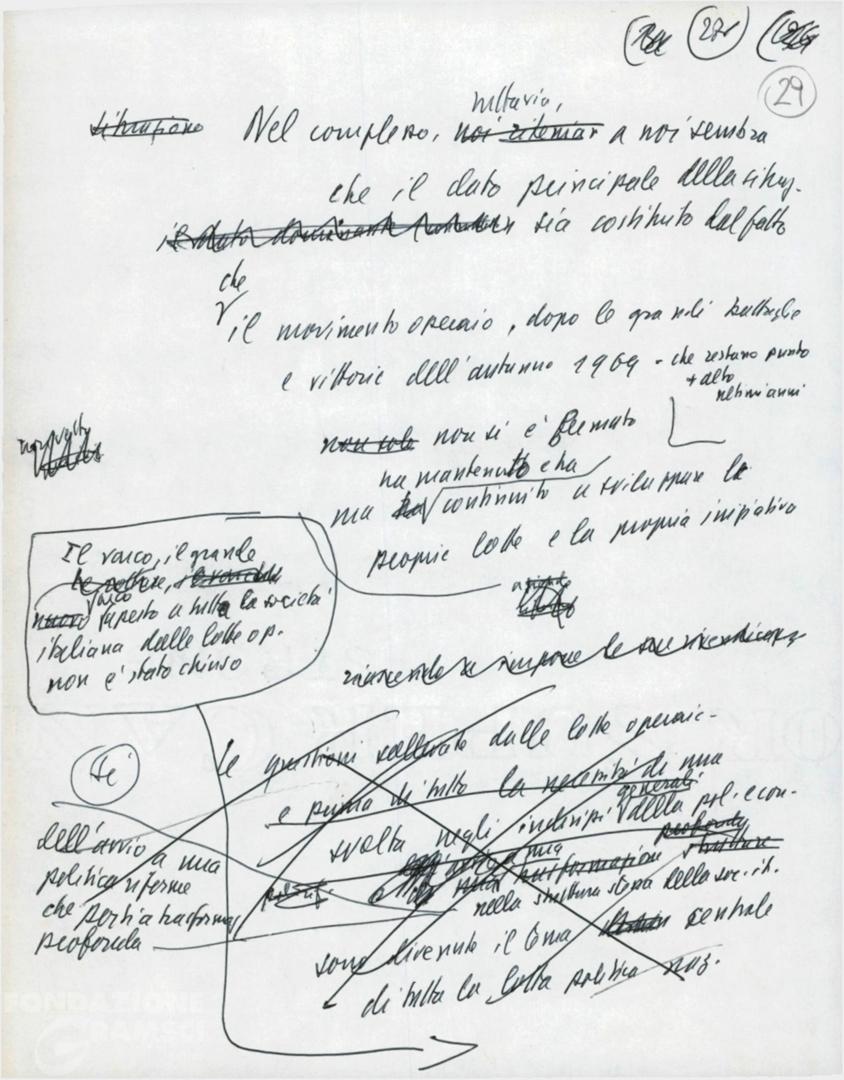 (27)
29
tuttavia,
situazione Nel complesso, noi riteniam a noi sembra
che il dato principale della situaz.
il dato dominante sia costituito dal fatto
che
il movimento operaio, dopo le grandi battaglie
e vittorie dell'autunno 1969 - che restano punto
+ alto
ultimi anni
non solo non si è fermato
ha mantenuto e ha
ma ha continuato a sviluppare le
proprie lotte e la propria iniziativa
Il varco, il grande
varco
nuovo aperto a tutta la società
italiana dalle lotte op.
non è stato chiuso
riuscendo a imporre le sue rivendicaz
le questioni sollevate dalle lotte operaie -
e prima di tutto la necessità di una
generali
svolta negli indirizzi della pol. econ.
profonda
trasformazione struttura
nella struttura stessa della soc. it.
sono divenute il tema centrale
di tutta la lotta politica naz.
dell'avvio a una
politica riforme
che porti a trasformaz
profonda